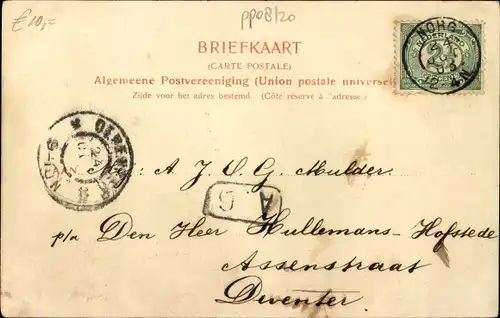 € 10,=
pp08/20
BRIEFKAART
(CARTE POSTALE)
Algemeene Postvereeniging (Union postale universel
Zijde voor het adres bestemd. (Côté réservé à l'adresse.)
NORG
4N
DEVENTER
A. J. O. G. Mulder.
A G
p/a Den Heer Hullemans-Hofstede
Assenstraat
Deventer